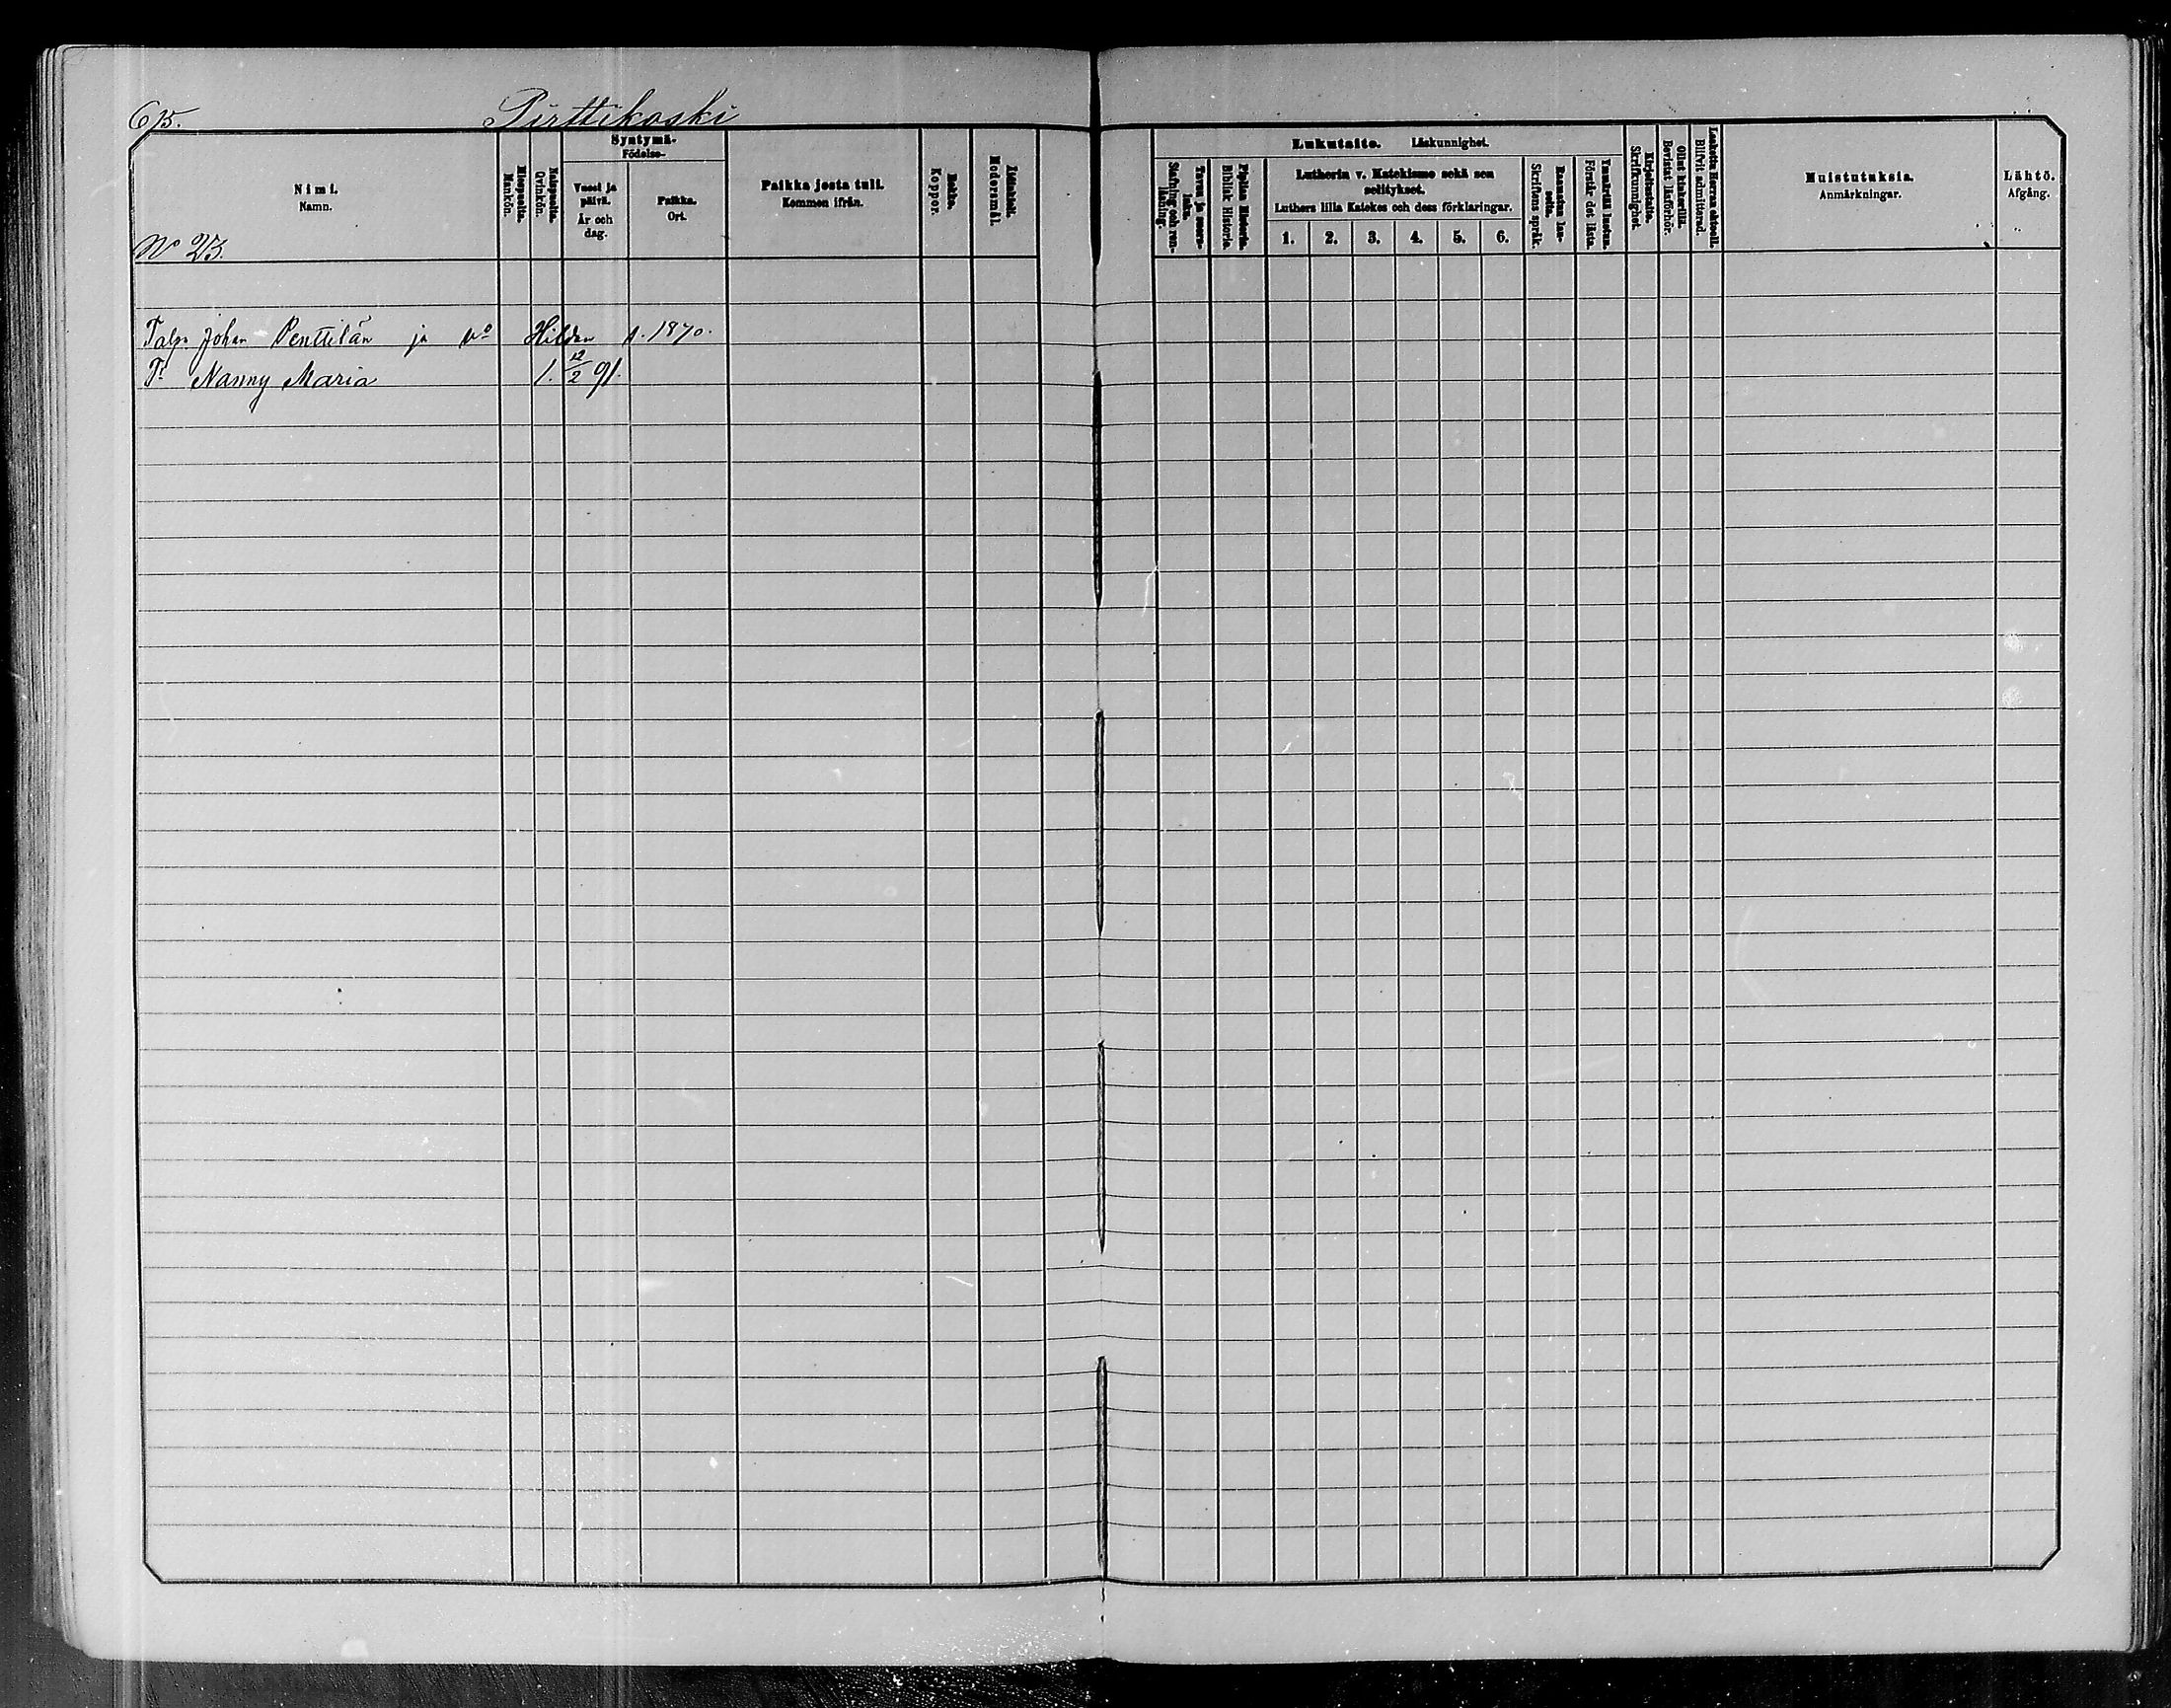 615. Pirttikoski
Nimi.
Namn.
No 23.
Miespuolia.
Mankön.
Naispuolia.
Qvinkön.
Syntymä-
Födelse-
Vuosi ja
päivä.
År och
dag.
Paikka.
Ort.
Paikka josta tuli.
Kommen ifrån.
Rokko.
Koppor.
Äidinkieli.
Modersmål.
Lukutaito. Läskunnighet.
Tavuu ja suoraluku.
Stafning och renläsning.
Piplian Historia.
Biblisk Historia.
Lutherin v. Katekismo sekä sen
selitykset.
Luthers lilla Katekes och dess förklaringar.
1. 2. 3. 4. 5. 6.
Raamatun lauseita.
Skriftens språk.
Ymmärtää luetun.
Förstår det lästa.
Kirjoitustaito.
Skrifkunnighet.
Ollut lukukerillä.
Bevistat läsförhör.
Laskettu Herran ehtooll.
Blifvit admitterad.
Muistutuksia.
Anmärkningar.
Lähtö.
Afgång.
Johan Penttilän ja vo Hildan s. 1870.
Tr Nanny Maria 1. 12/2 91.